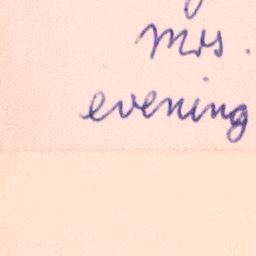 Mrs.
evening